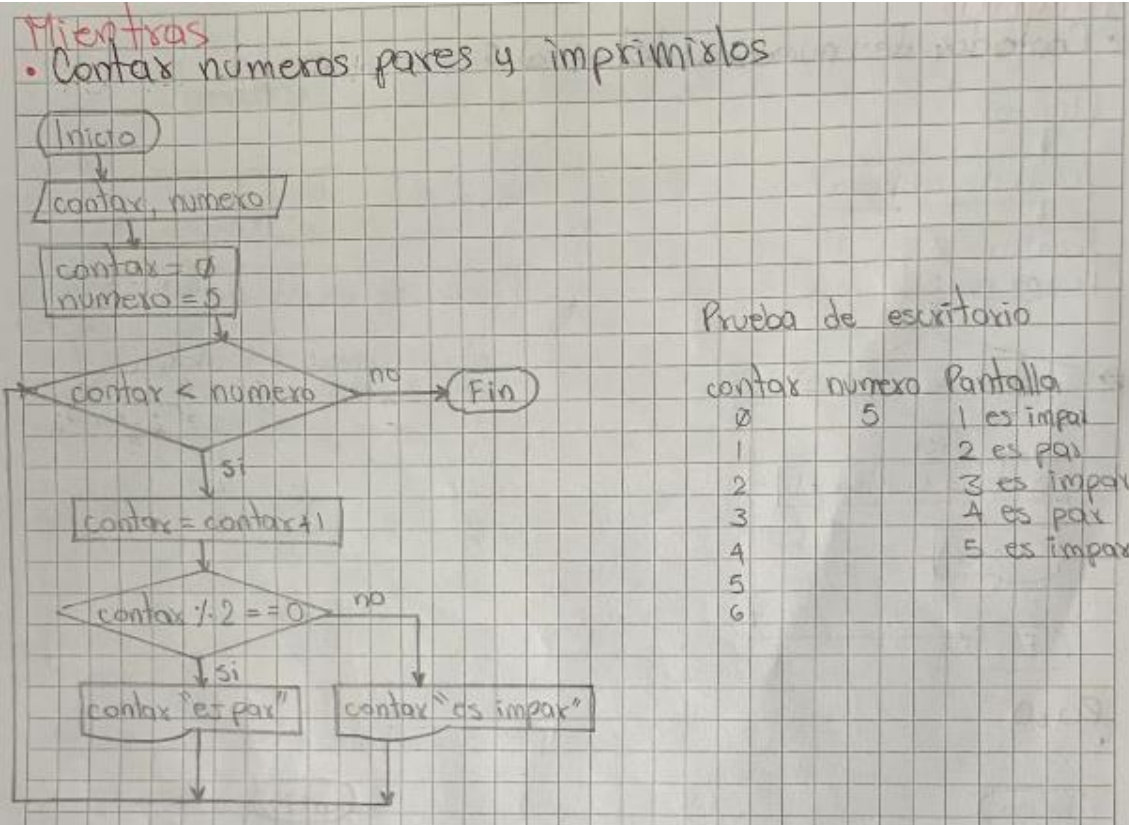 Mientras
• Contar números pares y imprimirlos
Inicio
contar, numero
contar = 0
numero = 5
contar < numero
no
Fin
si
contar = contar+1
contar % 2 == 0
no
si
contar "es par"
contar "es impar"
Prueba de escritorio
contar numero Pantalla
0 5 1 es impar
1 2 es par
2 3 es impar
3 4 es par
4 5 es impar
5
6